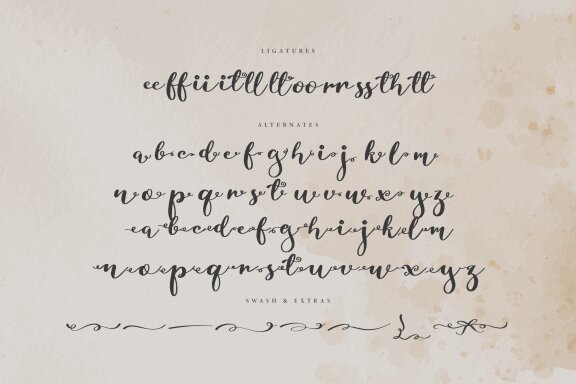 LIGATURES
ee ff ii it ll lt oo rr ss th tt
ALTERNATES
a b c d e f g h i j k l m
n o p q r s t u v w x y z
a b c d e f g h i j k l m
n o p q r s t u v w x y z
SWASH & EXTRAS